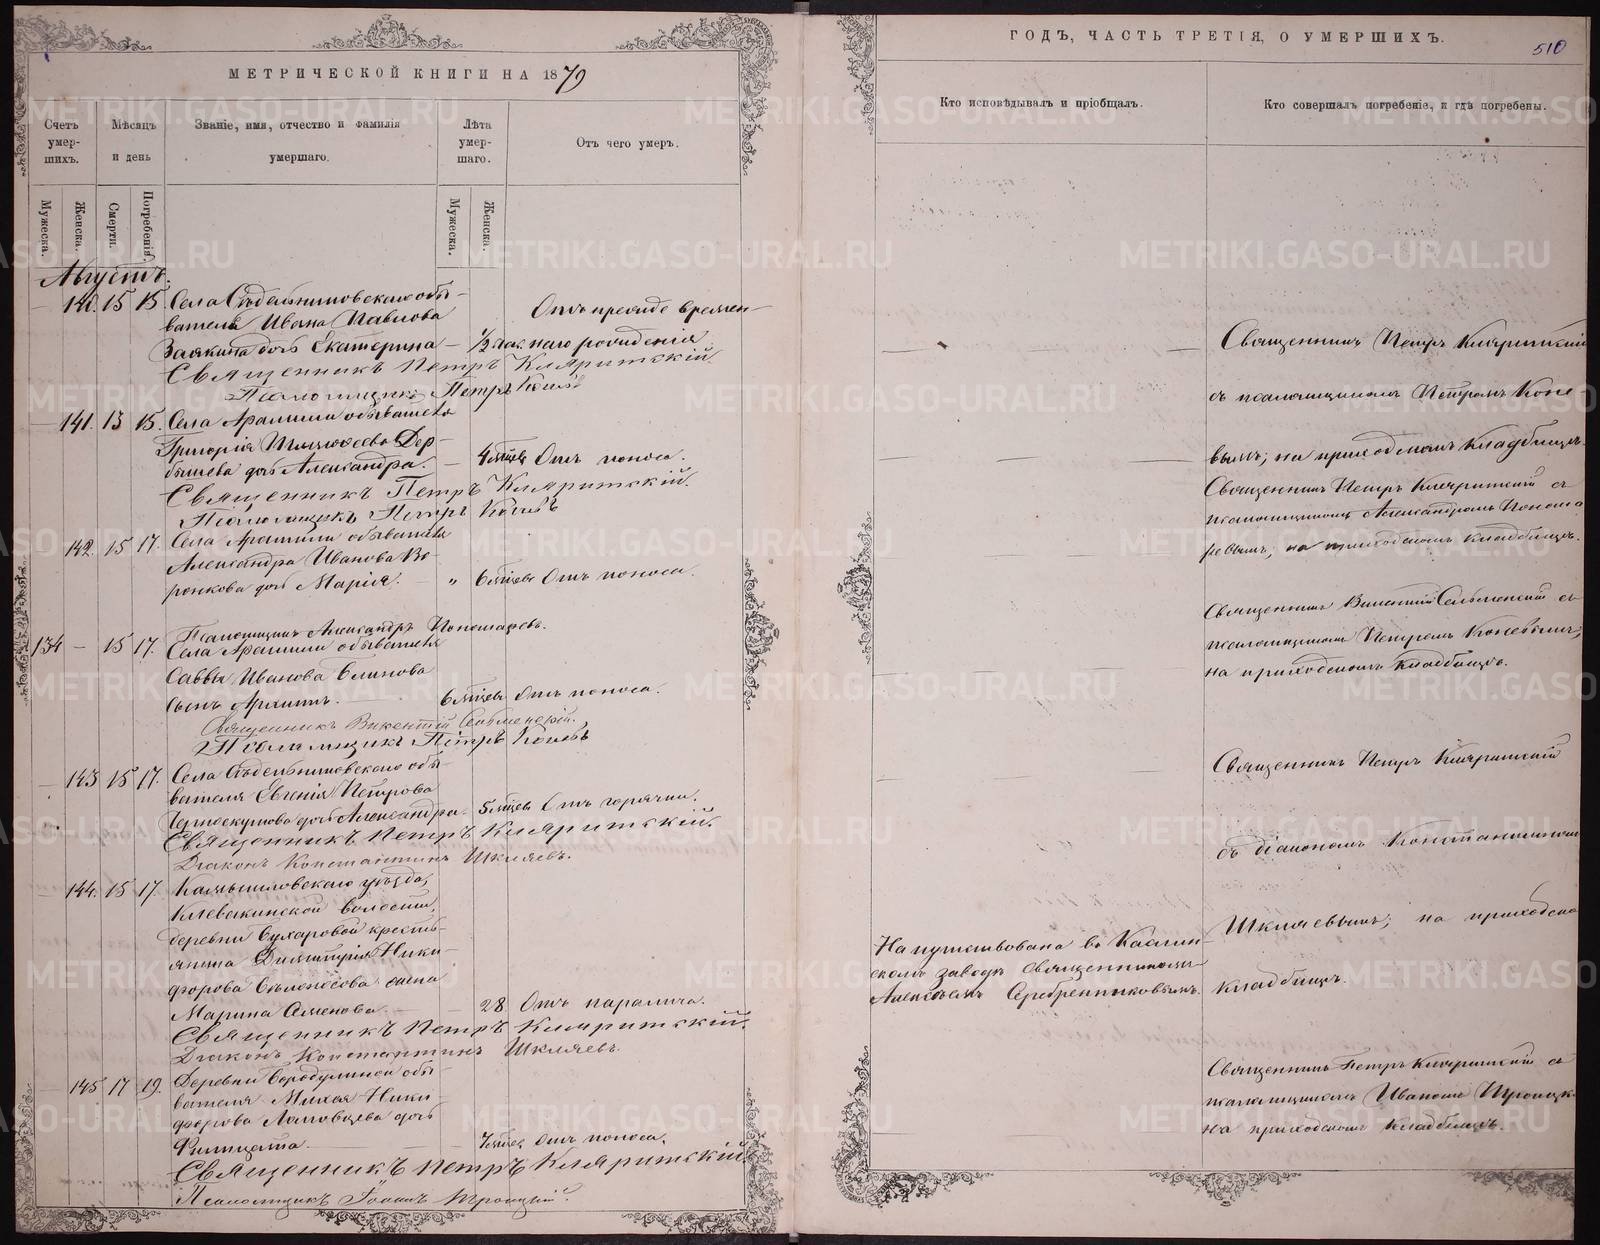 МЕТРИЧЕСКОЙ КНИГИ НА 1879
Счетъ умер-шихъ.
Мѣсяцъ и день
Званіе, имя, отчество и фамилія умершаго.
Лѣта умер-шаго.
Отъ чего умеръ.
Мужеска.
Женска.
Смерти.
Погребенія.
Мужеска.
Женска.
Августъ.
140. 15 15. Села обы-
вателя Ивана Павлова
Заякина дочь Екатерина — 1/2 час.
Отъ времен-
наго рожденія
Священникъ Петръ Кляритскій.
Псаломщикъ Петръ
141. 13 15. Села Арамили обывателя
Григорія
дочь Александра. — 4 мѣсяц. Отъ поноса.
Священникъ Петръ Кляритскій.
Псаломщикъ Петръ
142. 15 17. Села Арамили обывателя
Александра Иванова Во-
ронкова дочь Марія. — „ 6 мѣсяц. Отъ поноса.
Псаломщикъ Александръ Пономаревъ.
134 — 15 17. Села Арамили обывателя
Саввы Иванова Блинова
сынъ — 6 мѣсяц. Отъ поноса.
Священникъ Викентій
Псаломщикъ Петръ
143 15 17. Села обы-
вателя Евгенія Петрова
дочь Александра. 5 мѣсяц. Отъ горячки.
Священникъ Петръ Кляритскій.
Діаконъ Константинъ Шкляевъ.
144. 15 17. Камышловскаго уѣзда,
Клевакинской волости,
деревни Сухаровой кресть-
янина Димитрія Ники-
форова жена
Марина Семенова. — 28 Отъ паралича.
Священникъ Петръ Кляритскій.
Діаконъ Константинъ Шкляевъ.
145 17 19. Деревни Бородулиной обы-
вателя Михея Ники-
форова дочь
Фитицата. — 7 мѣсяц. Отъ поноса.
Священникъ Петръ Кляритскій.
Псаломщикъ Іоаннъ Троицкій.
ГОДЪ, ЧАСТЬ ТРЕТІЯ, О УМЕРШИХЪ.
510
Кто исповѣдывалъ и пріобщалъ.
Кто совершалъ погребеніе, и гдѣ погребены.
Священникъ Петръ Кляритскій
съ псаломщикомъ Петромъ Коне-
вымъ; на приходскомъ кладбищѣ.
Священникъ Петръ Кляритскій съ
псаломщикомъ Александромъ Понома-
ревымъ; на приходскомъ кладбищѣ.
Священникъ Викентій съ
псаломщикомъ Петромъ Коневымъ;
на приходскомъ кладбищѣ.
Священникъ Петръ Кляритскій
съ діакономъ Константиномъ
Шкляевымъ; на приходско
кладбищѣ.
Напутствована въ Каслин-
скомъ заводѣ священникомъ
Алексѣемъ Серебренниковымъ.
Священникъ Петръ Кляритскій съ
псаломщикомъ Иваномъ Троицк.
на приходскомъ кладбищѣ.
METRIKI.GASO-URAL.RU